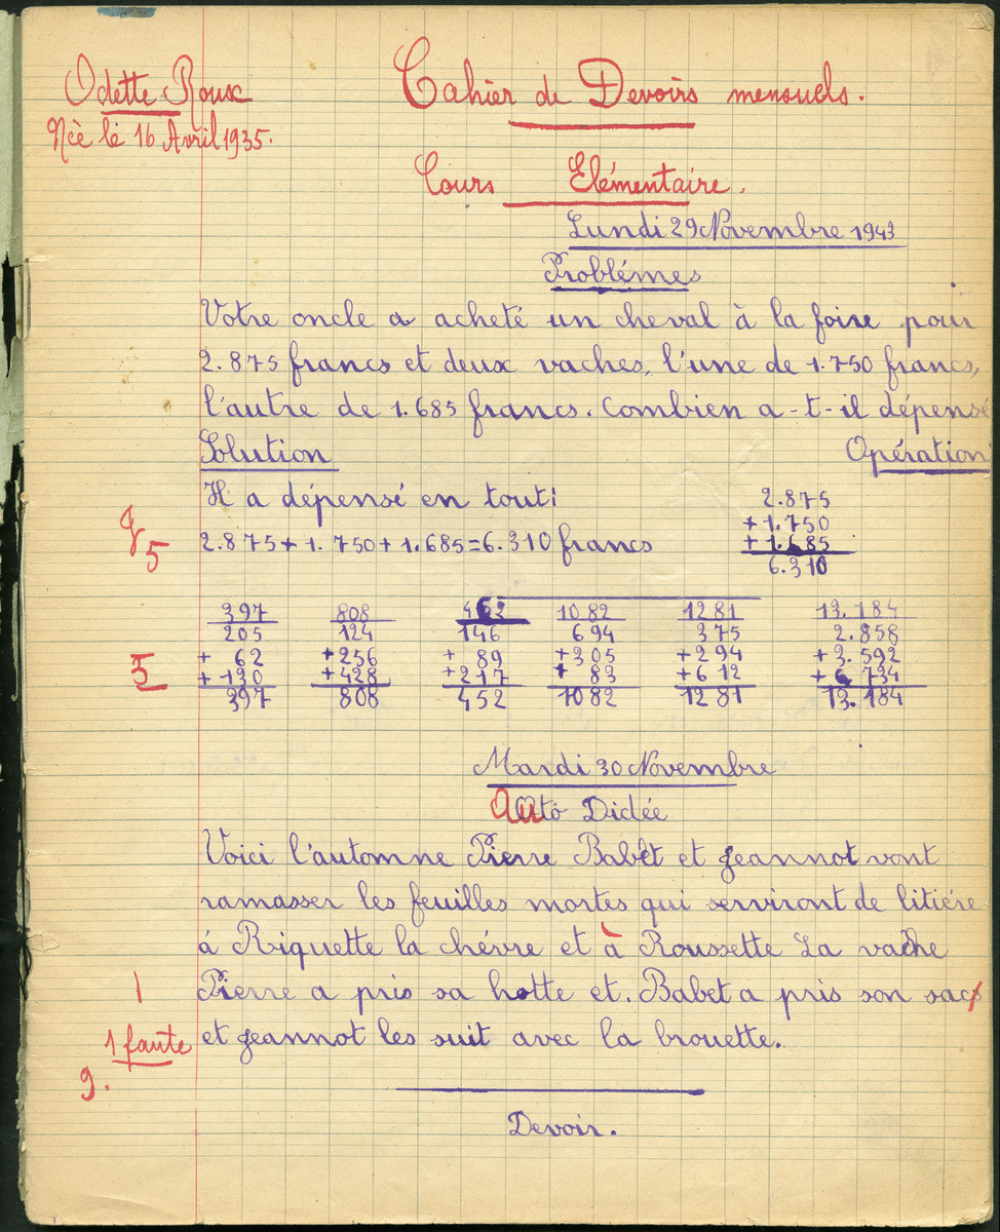 Odette Roux
Née le 16 Avril 1935.
Cahier de Devoirs mensuels.
Cours Elémentaire.
Lundi 29 Novembre 1943
Problémes
Votre oncle a acheté un cheval à la foire pour
2.875 francs et deux vaches, l'une de 1.750 francs,
l'autre de 1.685 francs. Combien a-t-il dépensé
Solution
Opération
Il a dépensé en tout:
2.875 + 1.750 + 1.685 = 6.310 francs
2.875
+ 1.750
+ 1.685
6.310
5
397 808 452 1082 1281 13.184
205 124 146 694 375 2.858
+ 62 +256 + 89 +305 +294 +3.592
+ 130 +428 +217 + 83 +612 +6 734
397 808 452 1082 1281 13.184
5
Mardi 30 Novembre
Auto Dictée
Voici l'automne Pierre Babet et Jeannot vont
ramasser les feuilles mortes qui serviront de litiére
á Riquette la chévre et à Roussette La vache
Pierre a pris sa hotte et. Babet a pris son sac
et Jeannot les suit avec la brouette.
1
1 faute
9.
Devoir.